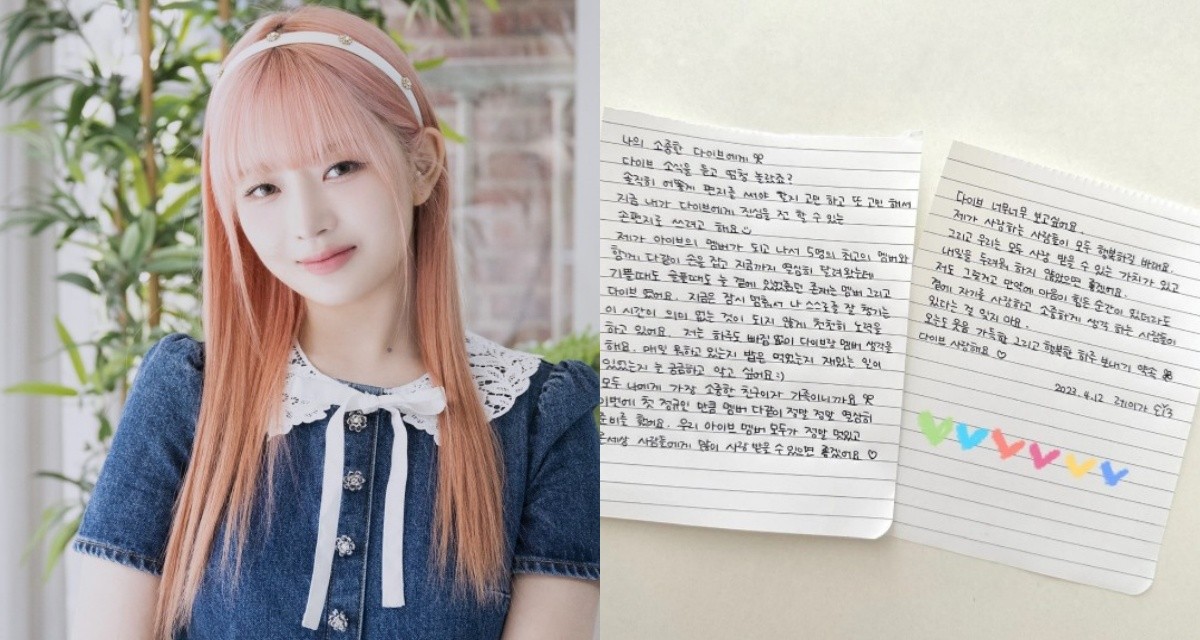 나의 소중한 다이브에게 ୨୧
다이브 소식을 듣고 엄청 놀랐죠?
솔직히 어떻게 편지를 써야 할지 고민하고 또 고민 해서
지금 내가 다이브에게 진심을 잘 할 수 있는
손편지로 쓰려고 해요
제가 아이브의 멤버가 되고 나서 5명의 최고의 멤버와
함께 다같이 손을 잡고 지금까지 열심히 달려왔는데
기쁠때도 슬플때도 늘 곁에 있었줬던 존재는 멤버 그리고
다이브 였어요. 지금은 잠시 멈춰서 나 스스로를 잘 챙기는
이 시간이 의미 없는 것이 되지 않게 천천히 노력을
하고 있어요. 저는 하루도 빠짐 없이 다이브랑 멤버 생각을
해요. 매일 뭐하고 있는지 밥은 먹었는지 재밌는 일이
있었는지 늘 궁금하고 알고 싶어요 :)
모두 나에게 가장 소중한 친구이자 가족이니까요
이번에 첫 정규인 만큼 멤버 다같이 정말 정말 열심히
준비를 했어요. 우리 아이브 멤버 모두가 정말 멋있고
온세상 사람들에게 많이 사랑 받을 수 있으면 좋겠어요 ♡
다이브 너무너무 보고싶어요.
제가 사랑하는 사람들이 모두 행복하길 바래요.
그리고 우리는 모두 사랑 받을 수 있는 가치가 있고
내일을 두려워 하지 않았으면 좋겠어요.
저도 그렇고 만약에 마음이 힘든 순간이 있더라도
곁에 자기를 사랑하고 소중하게 생각 하는 사람들이
있다는 걸 잊지 마요.
오늘도 웃음 가득한 그리고 행복한 하루 보내기 약속
다이브 사랑해요 ♡
2023. 4.12 레이가